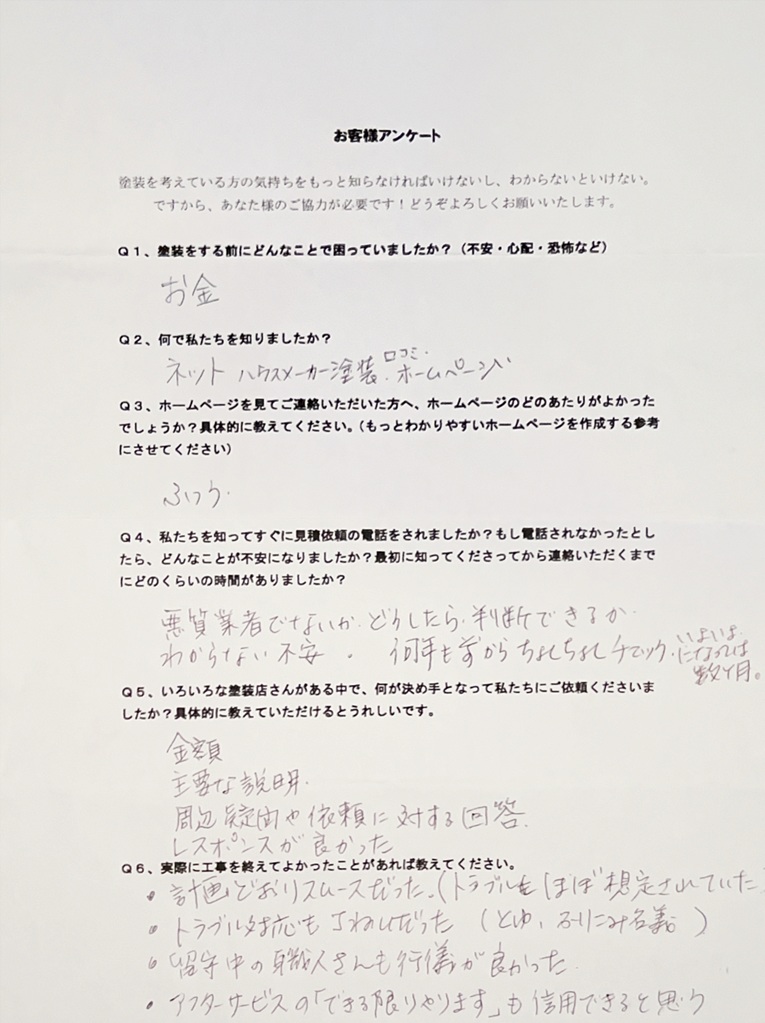 お客様アンケート
塗装を考えている方の気持ちをもっと知らなければいけないし、わからないといけない。
ですから、あなた様のご協力が必要です！どうぞよろしくお願いいたします。
Ｑ１、塗装をする前にどんなことで困っていましたか？（不安・心配・恐怖など）
お金
Ｑ２、何で私たちを知りましたか？
ネット ハウスメーカー塗装、口コミ・ホームページ
Ｑ３、ホームページを見てご連絡いただいた方へ、ホームページのどのあたりがよかった
でしょうか？具体的に教えてください。（もっとわかりやすいホームページを作成する参考
にさせてください）
ふつう.
Ｑ４、私たちを知ってすぐに見積依頼の電話をされましたか？もし電話されなかったとし
たら、どんなことが不安になりましたか？最初に知ってくださってから連絡いただくまで
にどのくらいの時間がありましたか？
悪質業者でないか. どうしたら. 判断できるか.
わからない不安. 何年も前からちょしちょしチェック. いよいよ
になっては
数ヶ月。
Ｑ５、いろいろな塗装店さんがある中で、何が決め手となって私たちにご依頼くださいま
したか？具体的に教えていただけるとうれしいです。
金額
主要な説明.
周辺疑問や依頼に対する回答.
レスポンスが良かった
Ｑ６、実際に工事を終えてよかったことがあれば教えてください。
・計画どおりスムースだった.（トラブルもほぼ想定されていた）
・トラブル対応もていねいだった（とゆ、ふりこみ名義）
・留守中の職人さんも行儀が良かった.
・アフターサービスの「できる限りやります」も信用できると思う